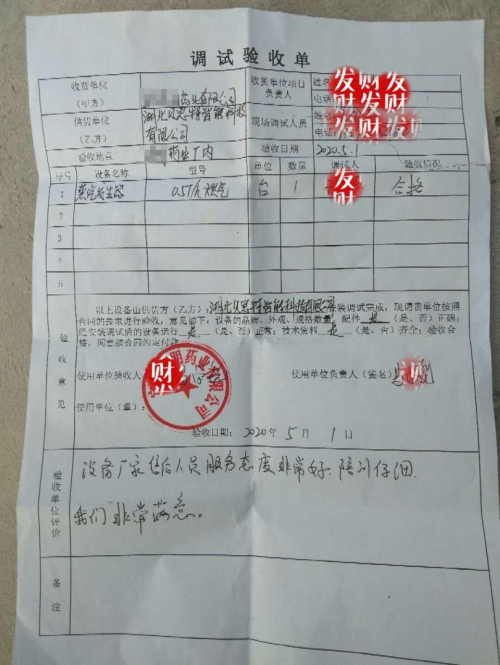 调试验收单
收货单位
(甲方)
药业有限公司
收货单位项目
负责人
姓名
电话
发财
供货单位
(乙方)
湖北义思特智能科技
有限公司
现场调试人员
姓名
电话
发财
验收地点
药业厂内
验收日期
2020.5.
序号
设备名称
型号
单位
数量
调试人
验收情况
1
蒸汽发生器
0.5T/h 燃气
台
1
发财
合格
2
3
4
5
验收意见
以上设备由供货方(乙方):湖北义思特智能科技有限公司安装调试完成,现请贵单位按照
合同的要求进行验收,意见如下:设备的品牌、外观、规格数量、配件是(是、否)正确;
经安装调试后的设备运行是(是、否)正常;技术资料是(是、否)齐全;验收合
格,同意按合同约定付款。
使用单位验收人
财
使用单位负责人(签名)
发财
药业有限公司
使用单位(章):
验收日期: 2020 年 5 月 1 日
验收单位评价
设备厂家售后人员服务态度非常好.陪训仔细.
我们非常满意。
备注